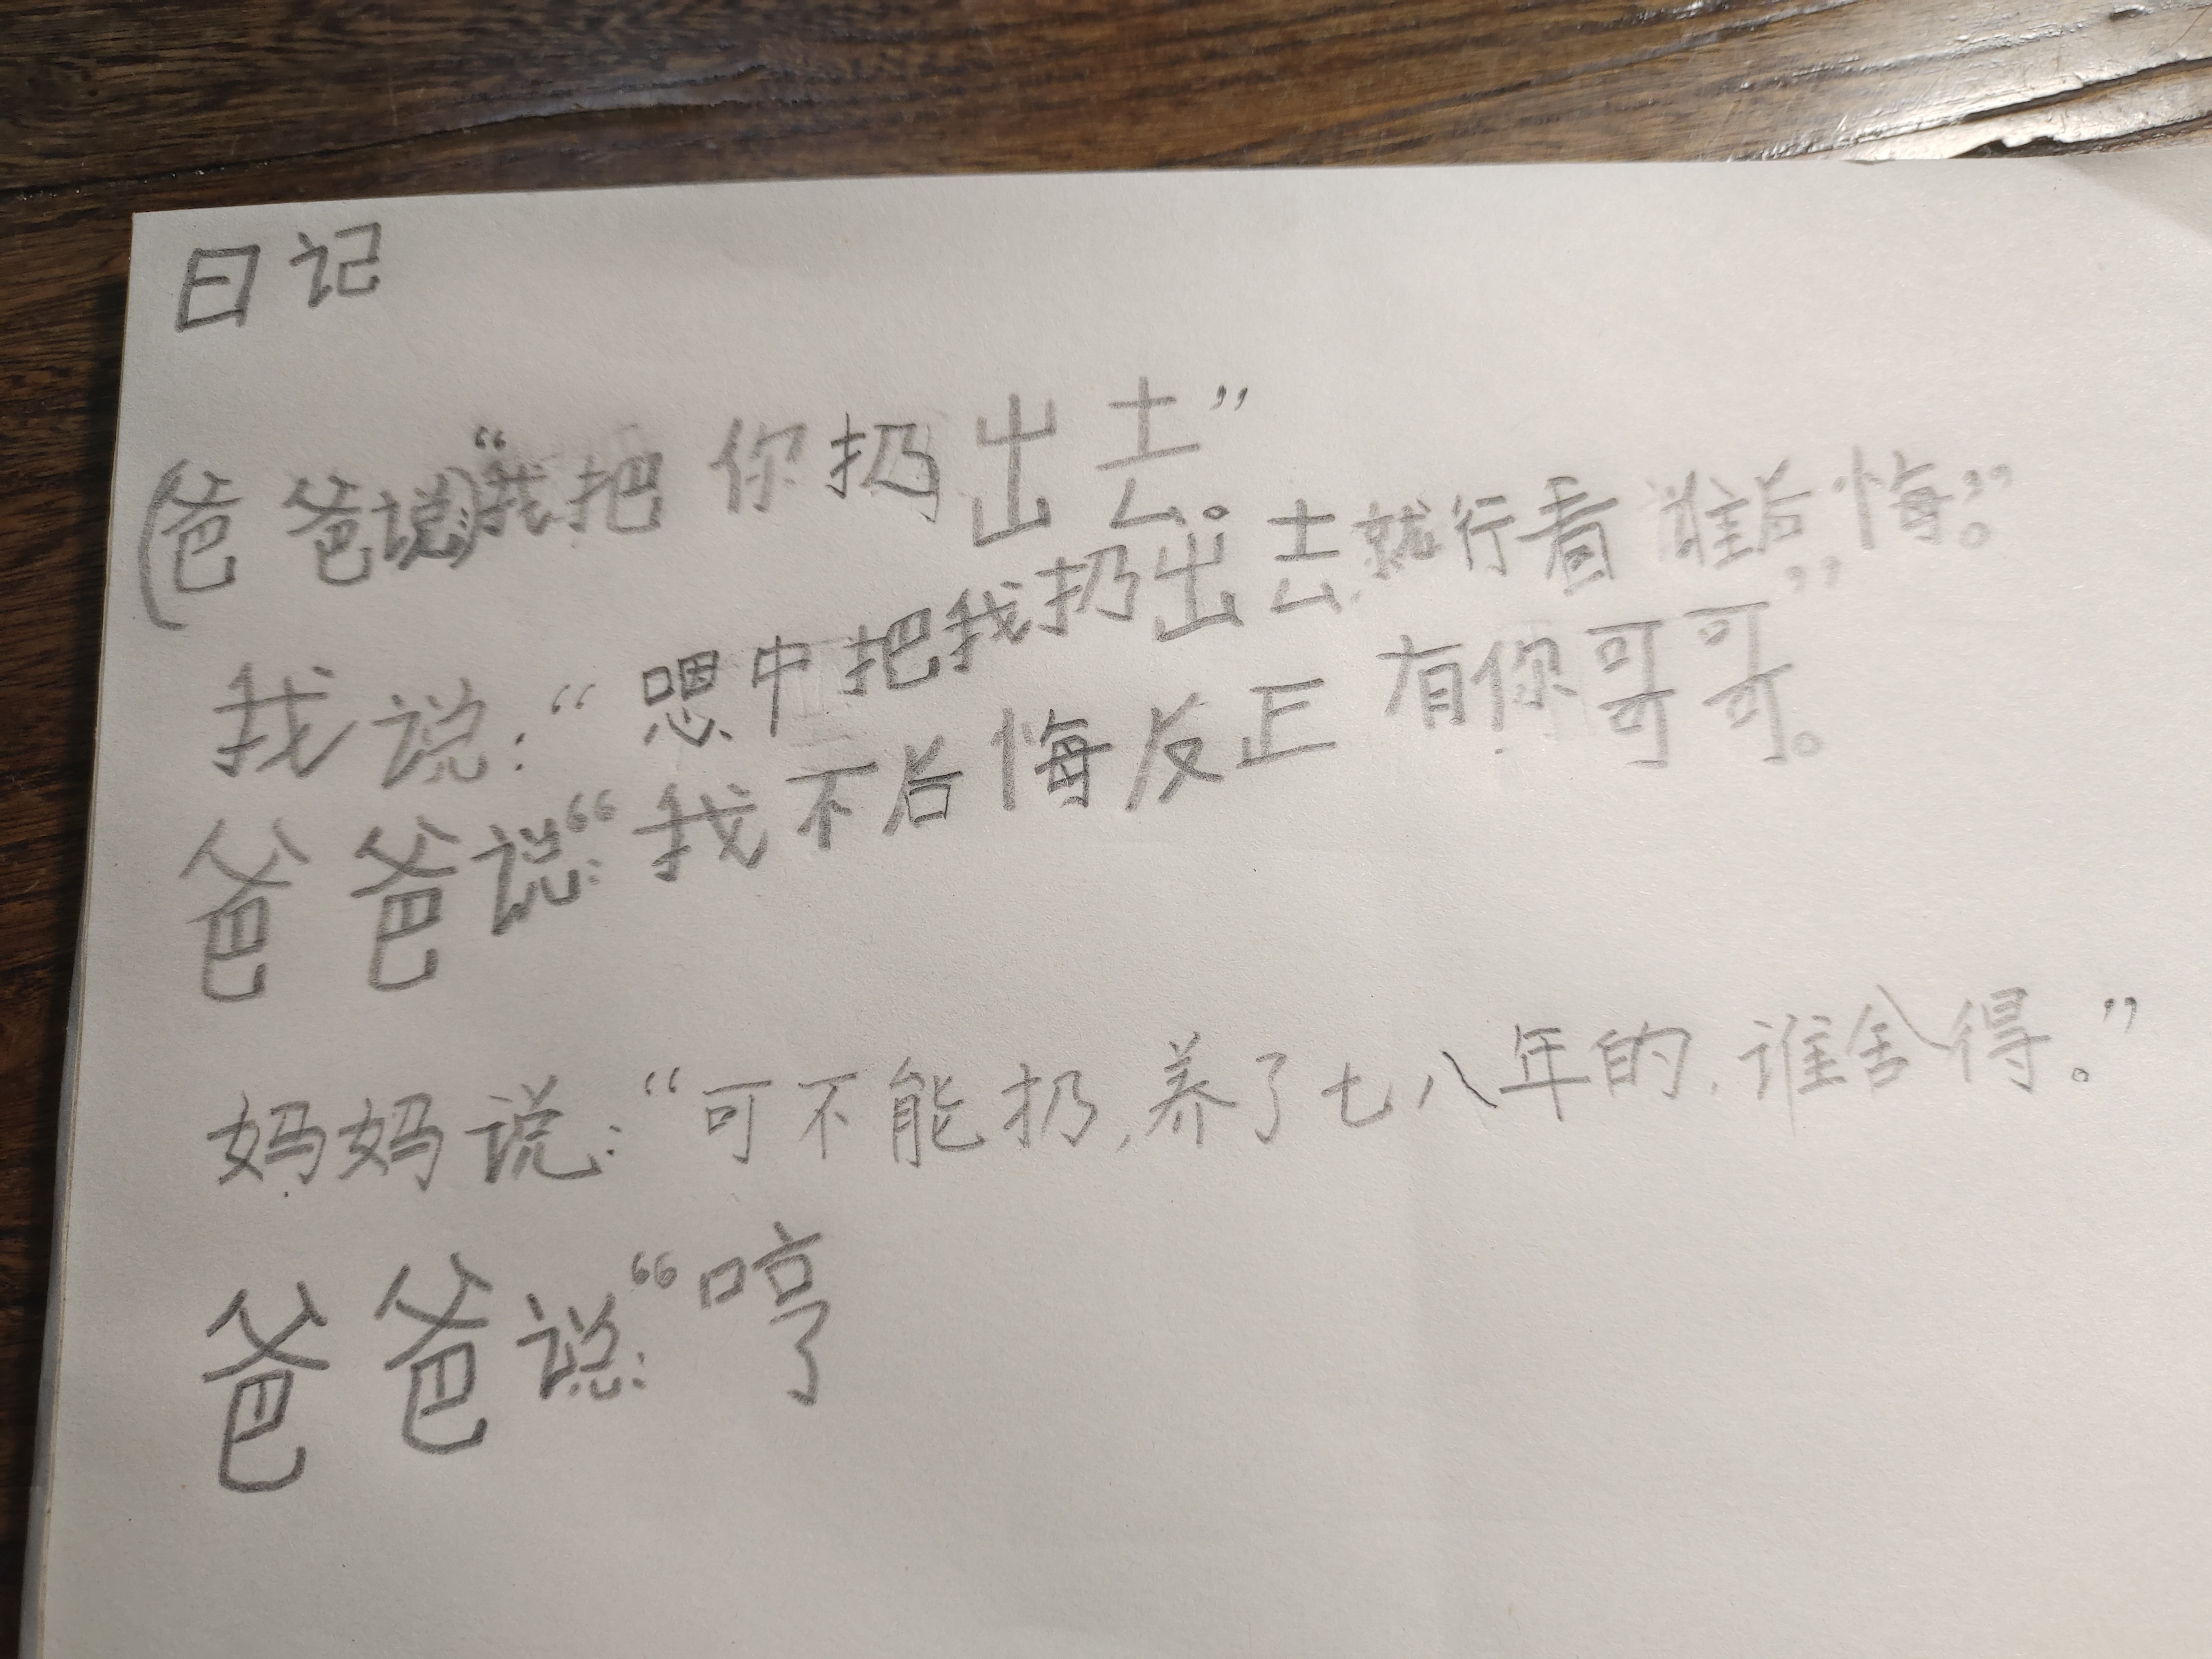 日记
(爸爸说)：“我把你扔出去。”
我说：“嗯中把我扔出去，就行看谁后悔。”
爸爸说：“我不后悔反正有你哥哥。”
妈妈说：“可不能扔，养了七八年的，谁舍得。”
爸爸说：“哼